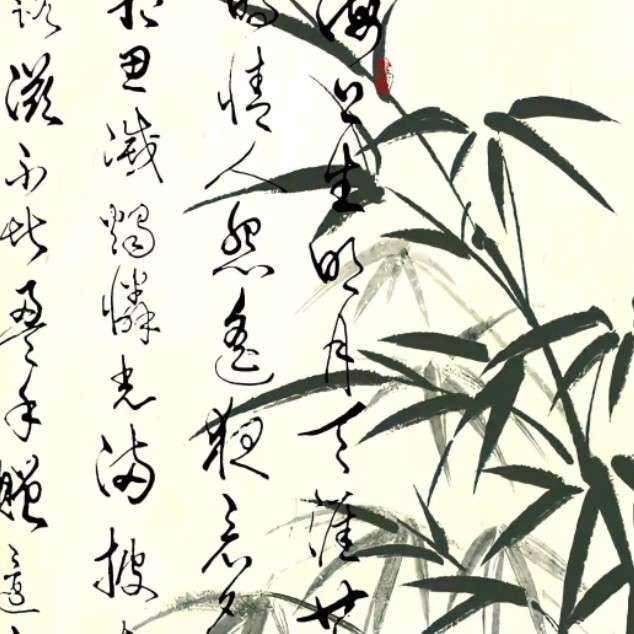 海上生明月天涯共
時情人怨遙夜竟夕
相思滅燭憐光滿披
露滋不堪盈手贈還